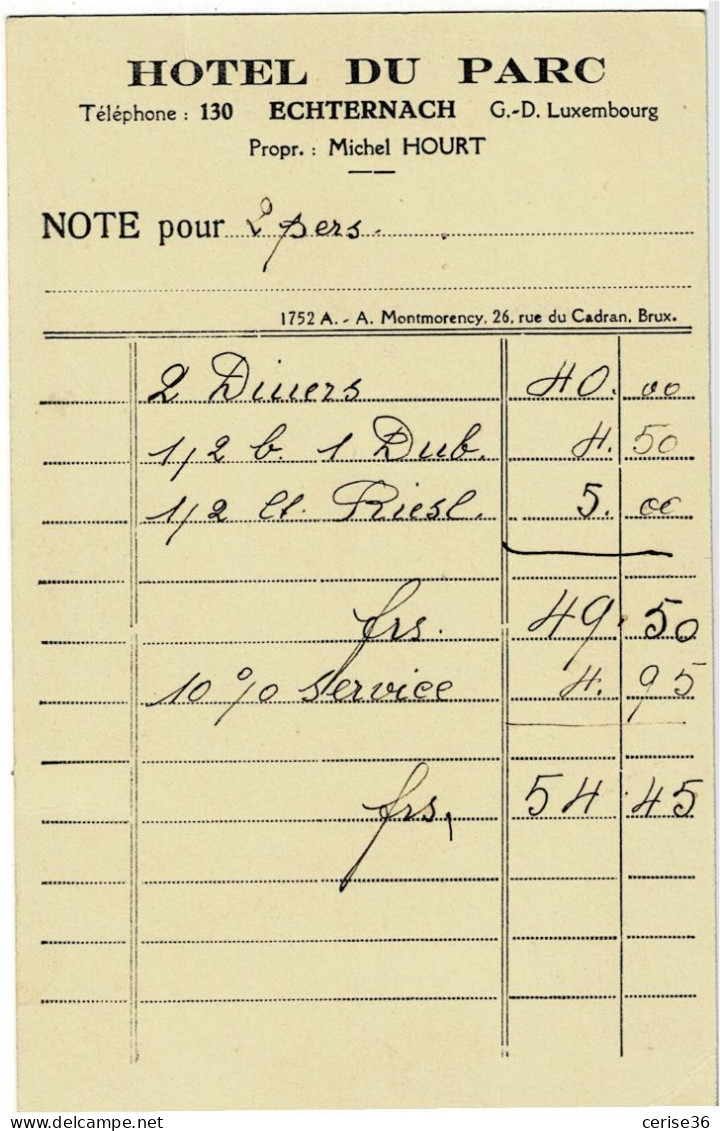 HOTEL DU PARC
Téléphone : 130 ECHTERNACH G.-D. Luxembourg
Propr. : Michel HOURT
NOTE pour 2 pers.
1752 A. - A. Montmorency, 26, rue du Cadran, Brux.
2 Diners 40. 00
1/2 b. 1 Dub. 4. 50
1/2 ct. Riesl. 5. 00
frs. 49. 50
10% Service 4. 95
frs, 54.45
cerise36